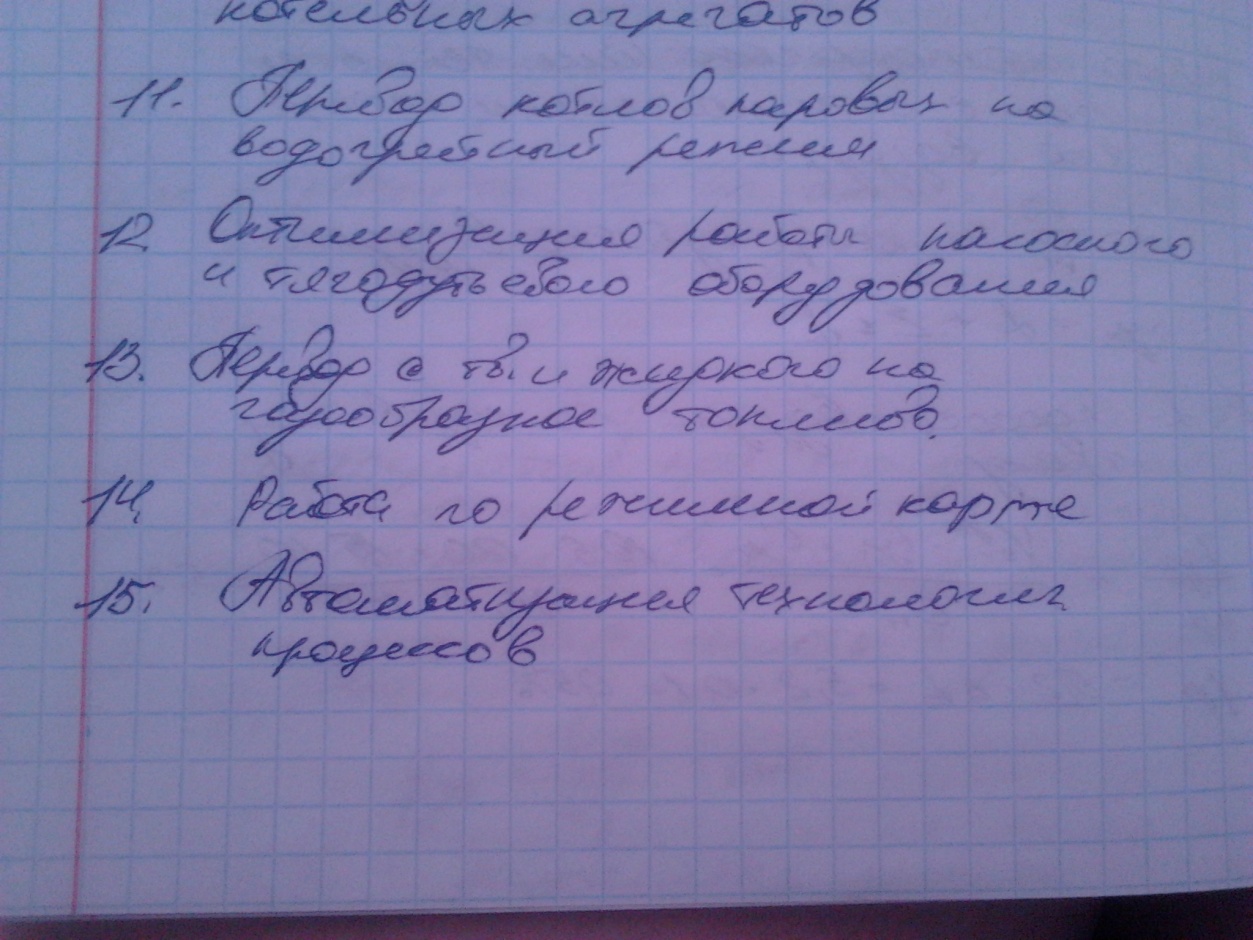 котельных агрегатов
11. Перевод котлов паровых на
водогрейный режим
12 Оптимизация работы насосного
и тягодутьевого оборудования
13. Перевод с тв. и жидкого на
газообразное топливо.
14. Работа по режимной карте
15. Автоматизация технологич.
процессов